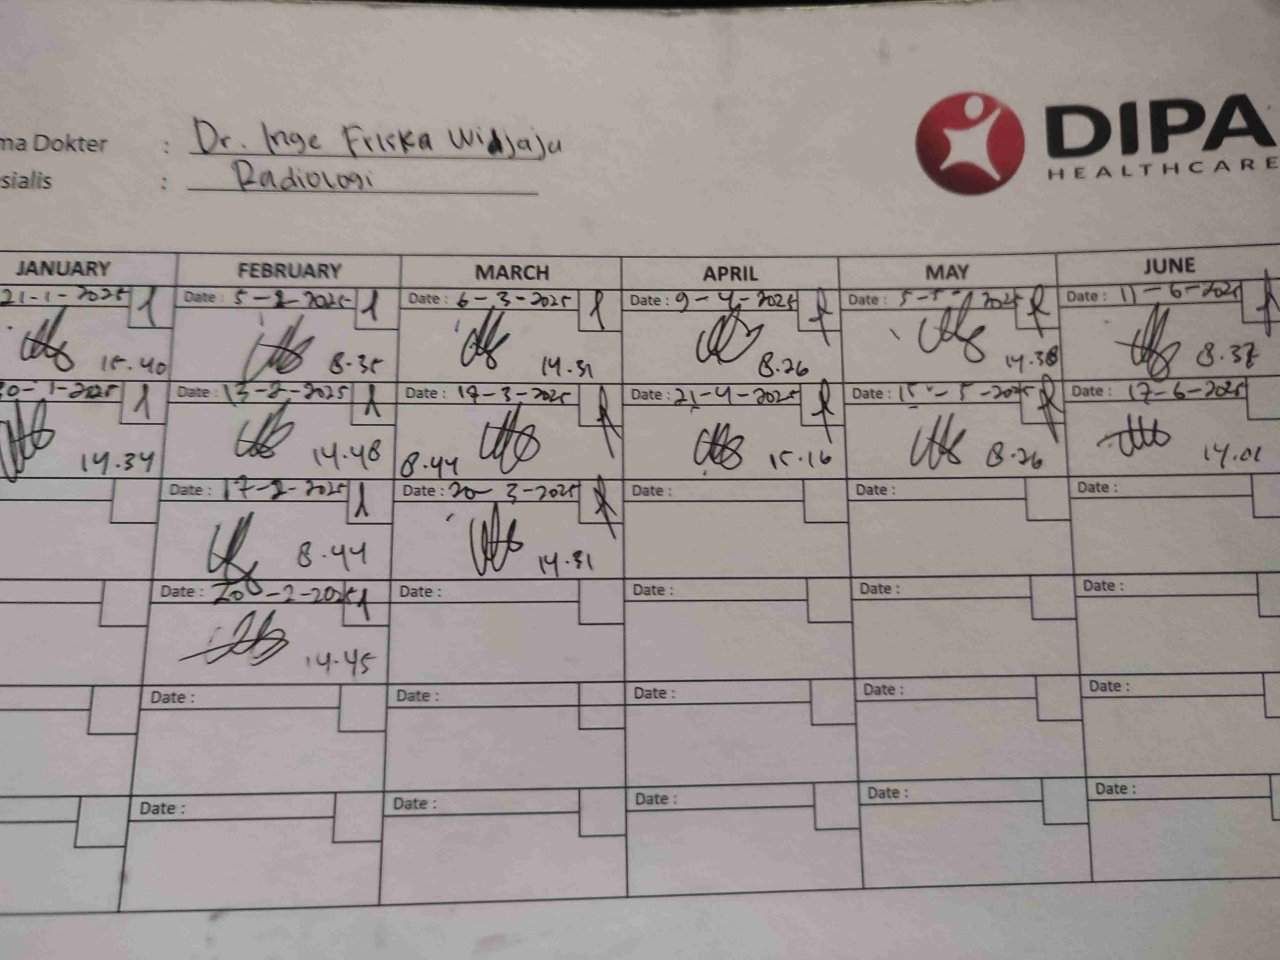 ma Dokter : Dr. Inge Friska Widjaja
sialis : Radiologi
DIPA
HEALTHCARE
JANUARY FEBRUARY MARCH APRIL MAY JUNE
21-1-2025 Date : 5-2-2025 Date : 6-3-2025 Date : 9-4-2025 Date : 5-5-2025 Date : 11-6-2025
15.40 8.35 14.31 8.26 14.38 8.37
30-1-2025 Date : 13-2-2025 Date : 3-2025 Date : 21-4-2025 Date : 15-5-2025 Date : 17-6-2025
14.34 14.48 8.44 15.16 8.26 14.01
Date : 17-2-2025 Date : 20-3-2025 Date : Date : Date :
8.44 14.31
Date : 20-2-2025 Date : Date : Date : Date :
14.45
Date : Date : Date : Date : Date :
Date : Date : Date : Date : Date :